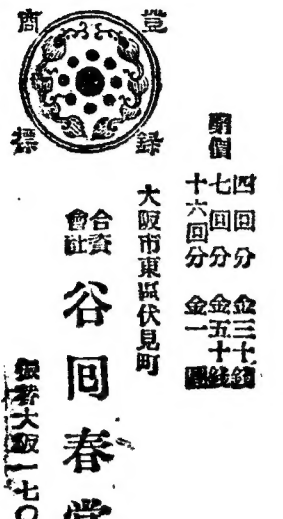 登録
商標
定價
四回分 金三十錢
七回分 金五十錢
十六回分 金一圓
大阪市東區伏見町
合資會社 谷回春堂
振替大阪一七〇